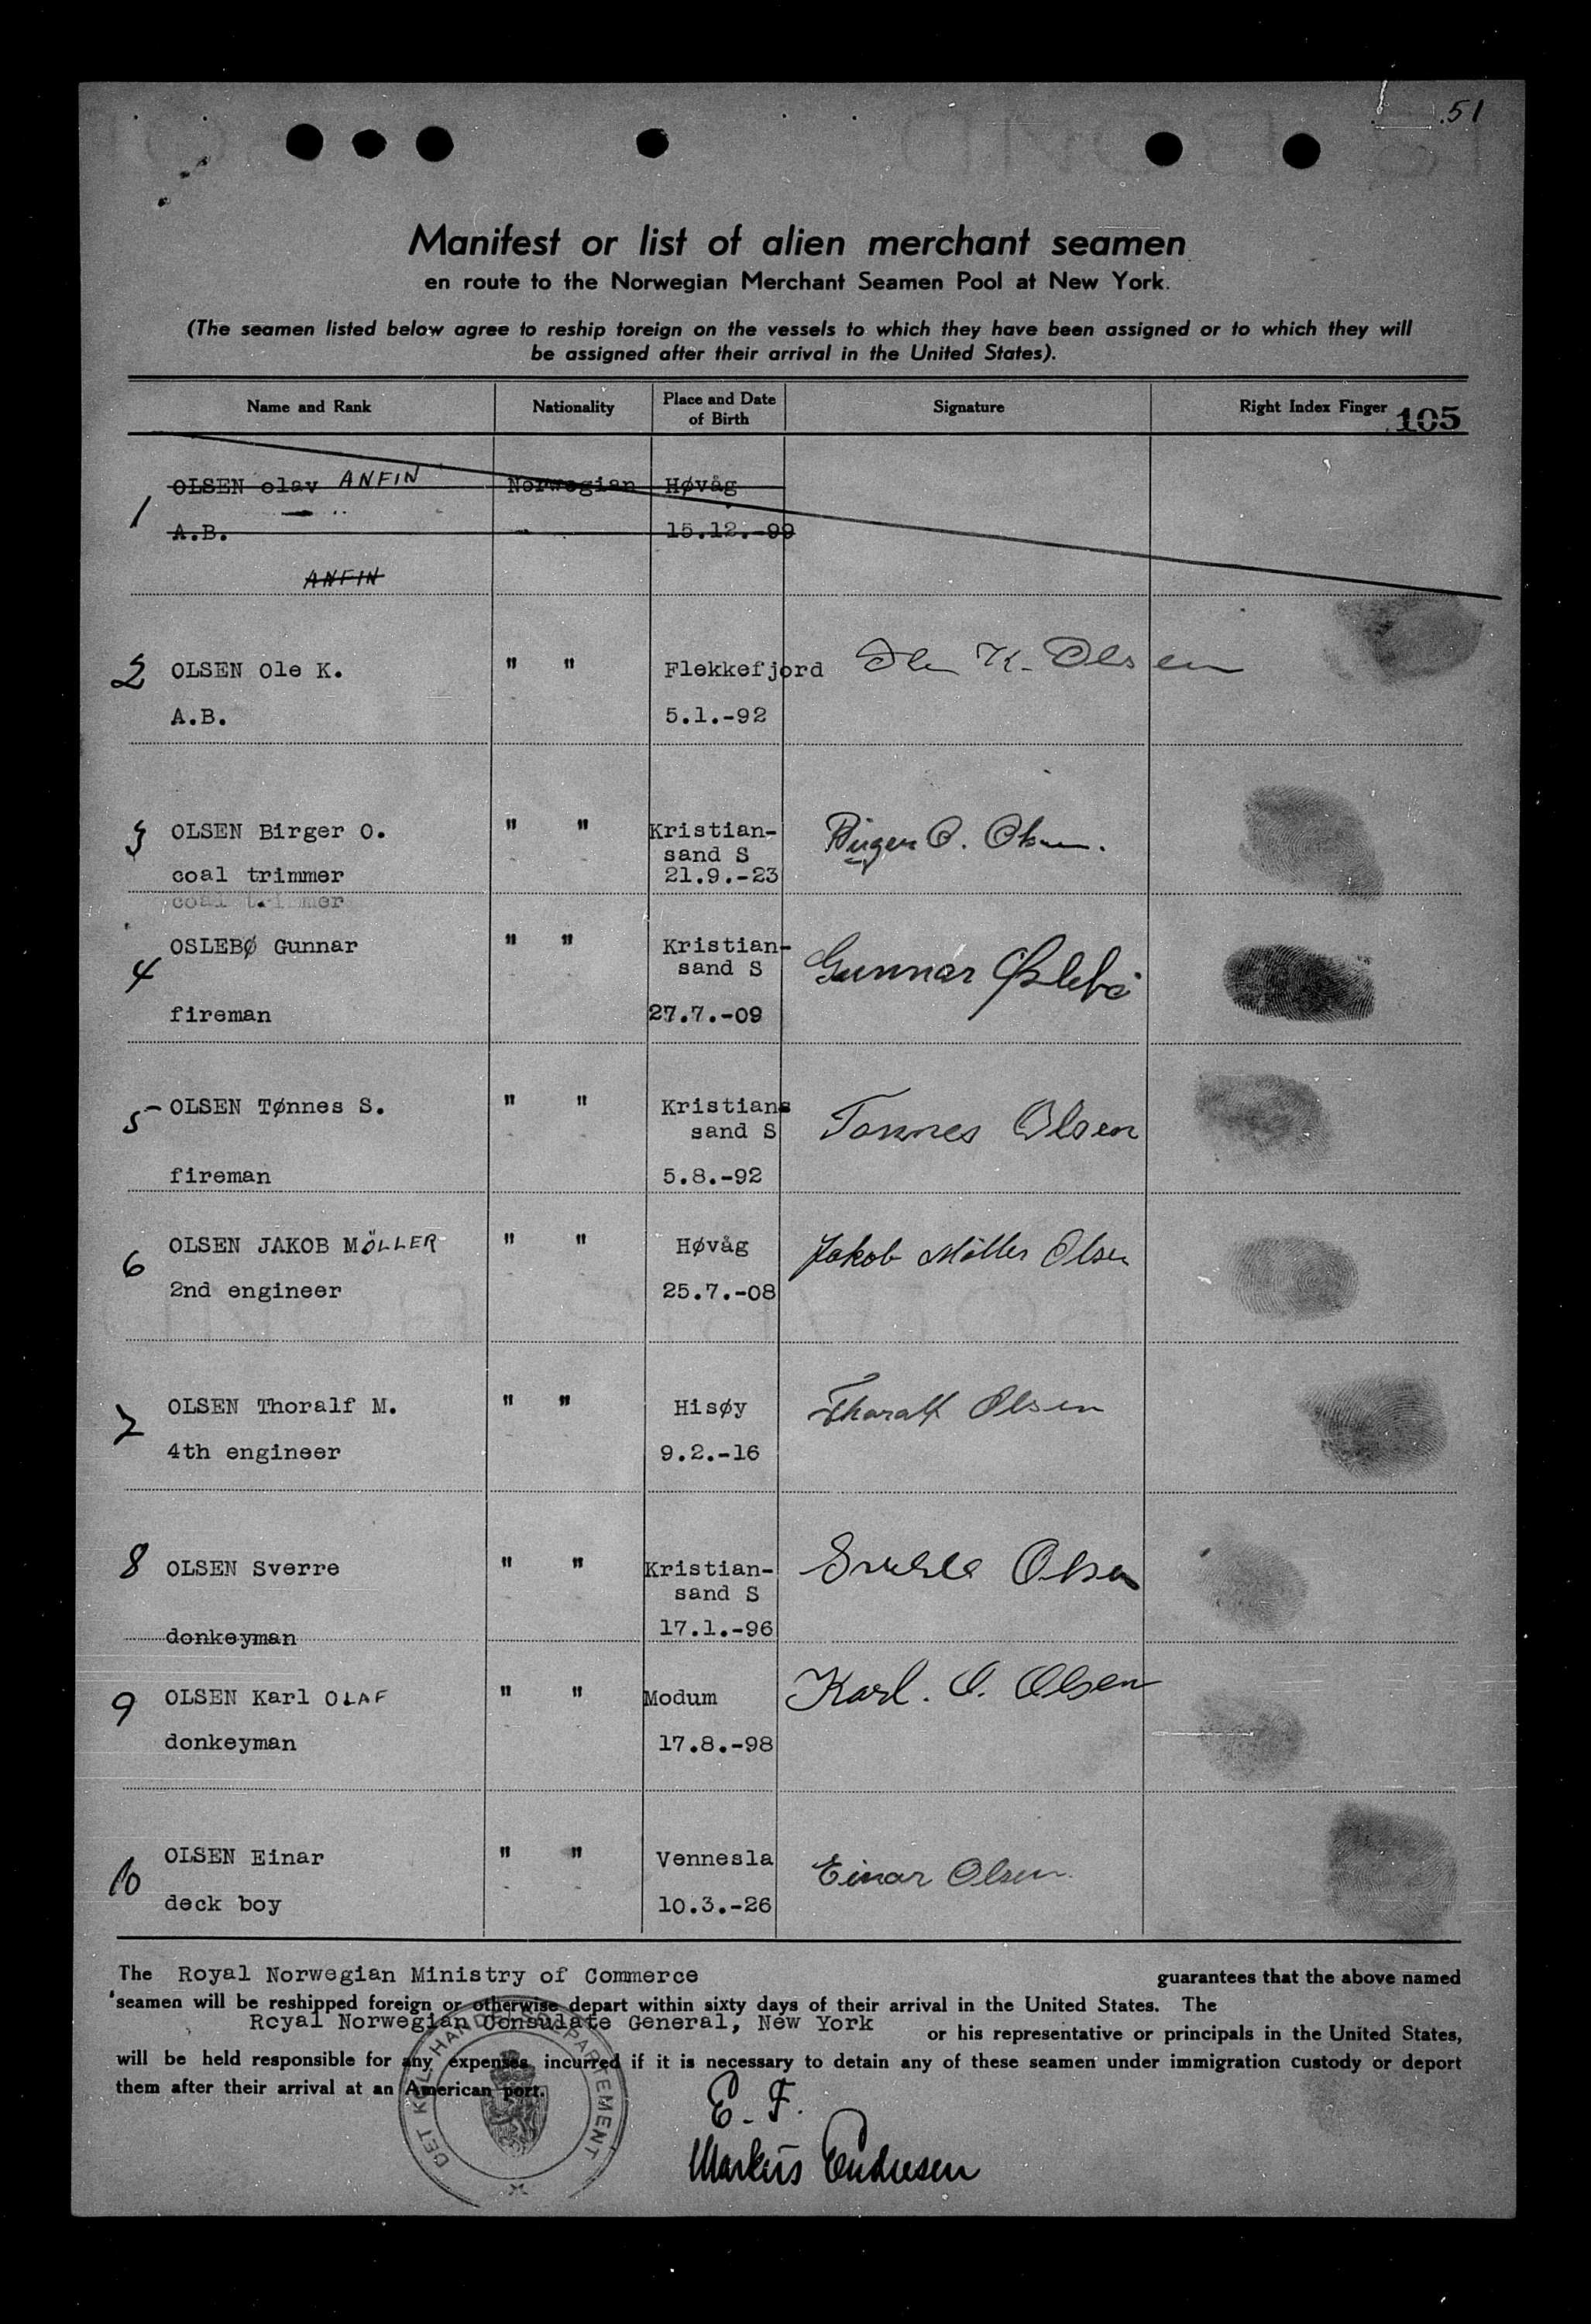 51
Manifest or list of alien merchant seamen
en route to the Norwegian Merchant Seamen Pool at New York.
(The seamen listed below agree to reship foreign on the vessels to which they have been assigned or to which they will
be assigned after their arrival in the United States).
Name and Rank Nationality Place and Date of Birth Signature Right Index Finger 105
1 OLSEN olav ANFIN Norwegian Høvåg
A.B. 15.12.-99
ANFIN
2 OLSEN Ole K. " " Flekkefjord Ole K. Olsen
A.B. 5.1.-92
3 OLSEN Birger O. " " Kristian- Birger O. Olsen.
sand S
coal trimmer 21.9.-23
coal trimmer
4 OSLEBØ Gunnar " " Kristian- Gunnar Øslebø
sand S
fireman 27.7.-09
5 OLSEN Tønnes S. " " Kristians Tonnes Olsen
sand S
fireman 5.8.-92
6 OLSEN JAKOB MÖLLER " " Høvåg Jakob Möller Olsen
2nd engineer 25.7.-08
7 OLSEN Thoralf M. " " Hisøy Thoralf Olsen
4th engineer 9.2.-16
8 OLSEN Sverre " " Kristian- Sverre Olsen
sand S
donkeyman 17.1.-96
9 OLSEN Karl OLAF " " Modum Karl. O. Olsen
donkeyman 17.8.-98
10 OLSEN Einar " " Vennesla Einar Olsen
deck boy 10.3.-26
The Royal Norwegian Ministry of Commerce guarantees that the above named
seamen will be reshipped foreign or otherwise depart within sixty days of their arrival in the United States. The
Royal Norwegian Consulate General, New York or his representative or principals in the United States,
will be held responsible for any expenses incurred if it is necessary to detain any of these seamen under immigration custody or deport
them after their arrival at an American port.
DET KGL. HANDELSDEPARTEMENT
E. F.
Markus Endresen